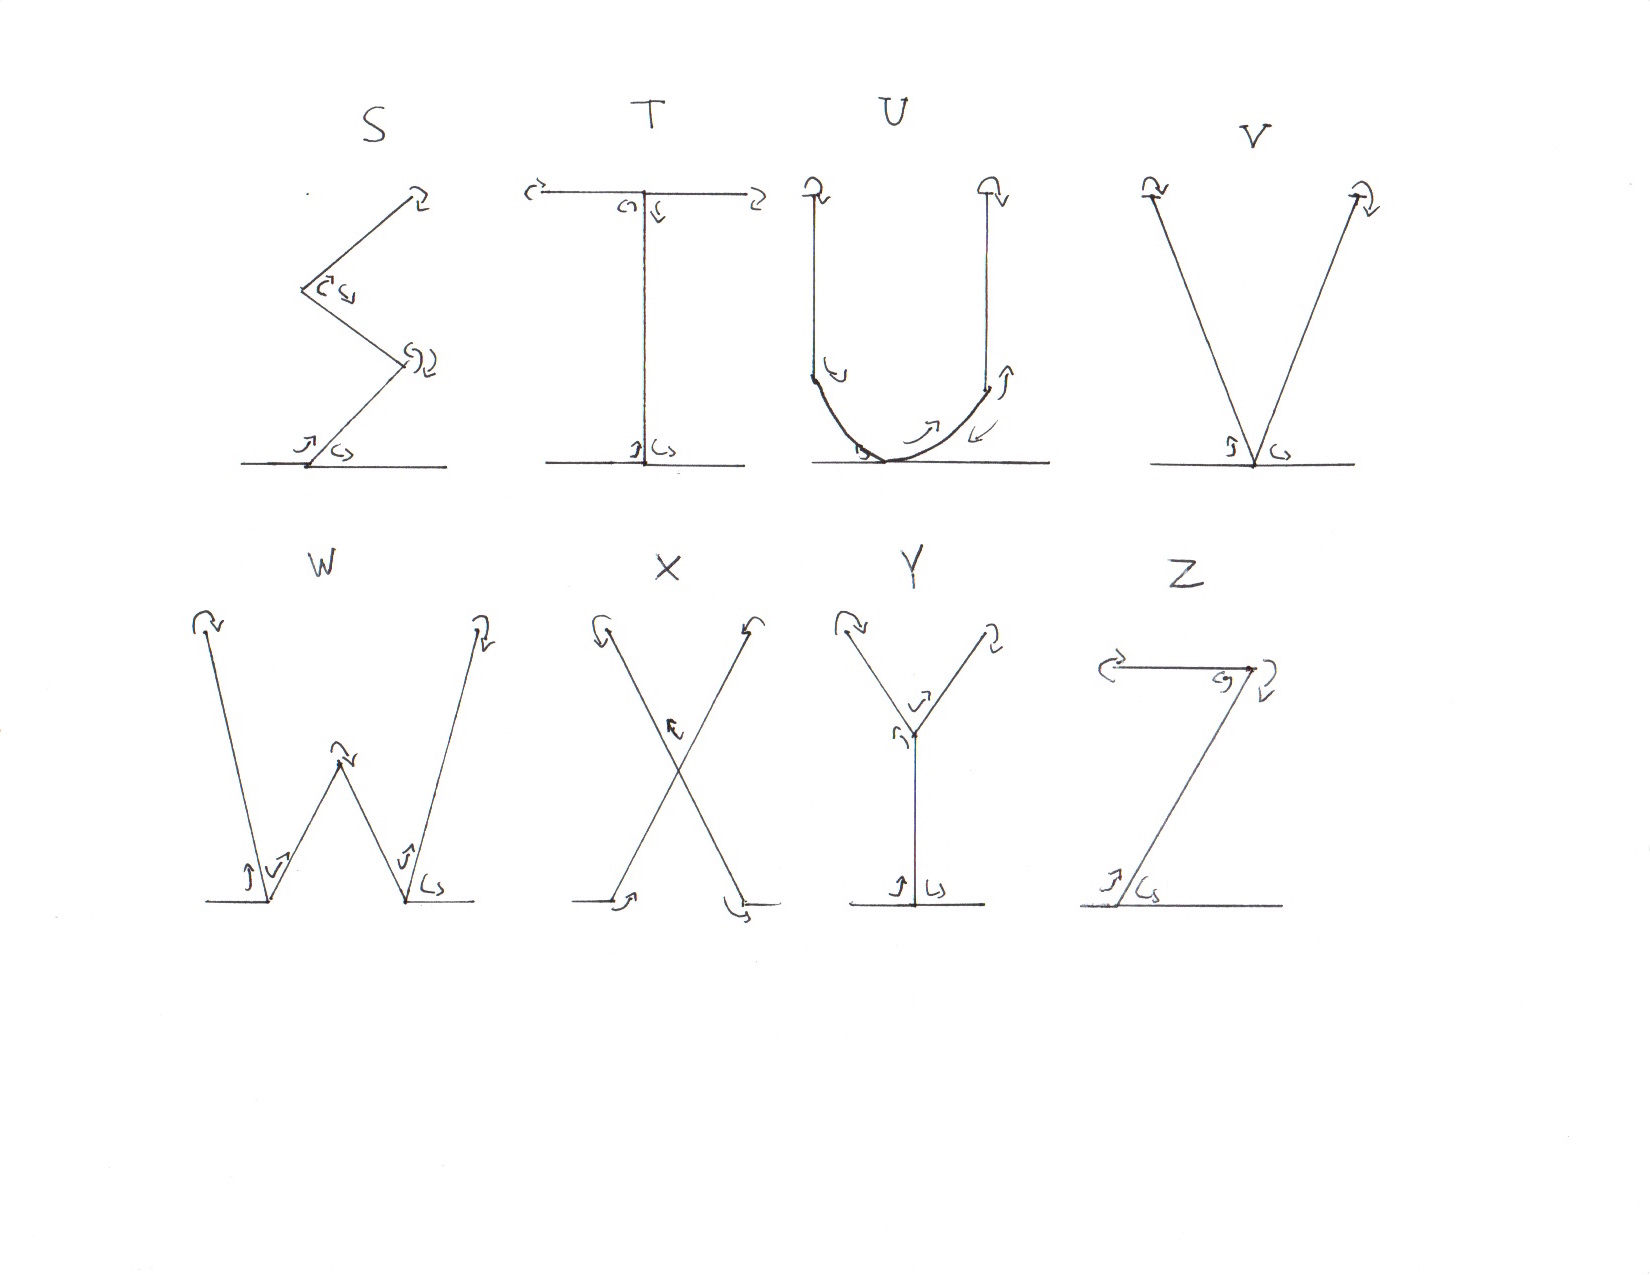 S T U V
W X Y Z